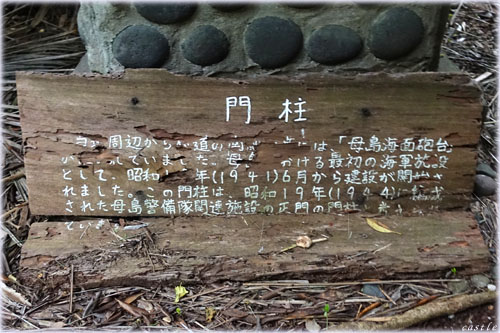 門柱
周辺から 道の は、「母島海面砲台
っていました。母島 ける最初の海軍施設
として、昭和 年(1941)6月から建設が開始さ
れました。この門柱は、昭和19年(1944)に
された母島警備隊関連施設の正門の門柱
castle